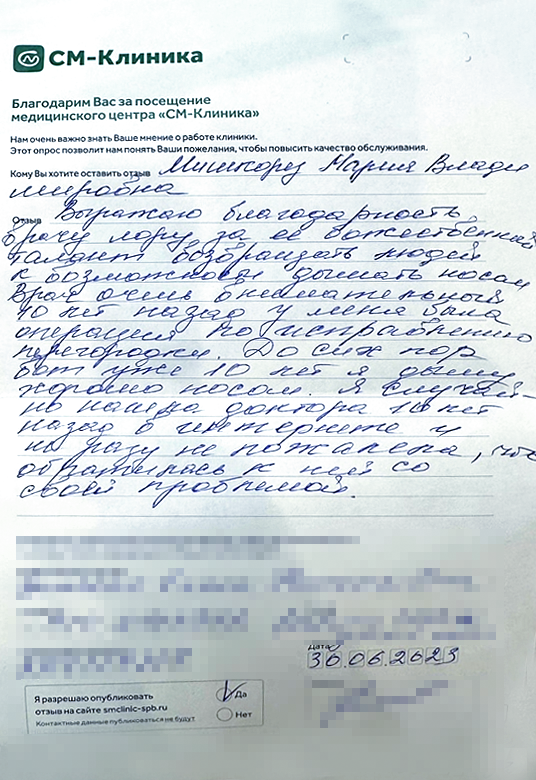 СМ-Клиника
Благодарим Вас за посещение
медицинского центра «СМ-Клиника»
Нам очень важно знать Ваше мнение о работе клиники.
Этот опрос позволит нам понять Ваши пожелания, чтобы повысить качество обслуживания.
Кому Вы хотите оставить отзыв Мишкорез Мария Влади
мировна
Отзыв Выражаю благодарность
врачу лору за её божественный
талант возвращать людей
к возможности дышать носом
Врач очень внимательный
10 лет назад у меня была
операция по исправлению
перегородки. До сих пор
вот уже 10 лет я дышу
хорошо носом. Я случай-
но нашла доктора 10 лет
назад в интернете и
ни разу не пожалела, что
обратилась к ней со
своей проблемой.
Дата
30.06.2023
Я разрешаю опубликовать
отзыв на сайте smclinic-spb.ru
Контактные данные публиковаться не будут
Да
Нет